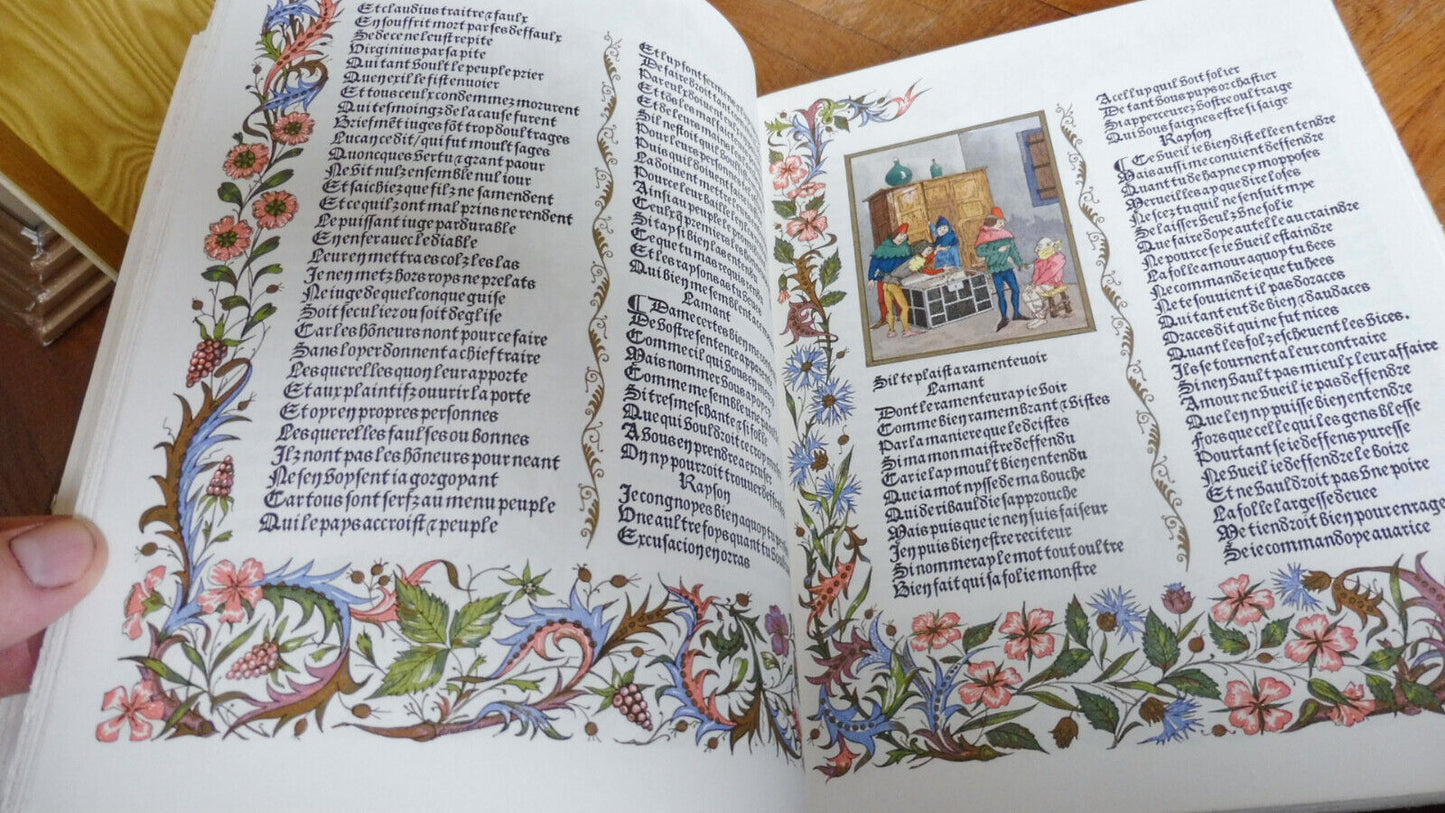 Et claudius traitre & faulx
En souffrit mort par ses deffaulx
Se de ce ne leust respite
Virginius par sa pite
Qui tant voult le peuple prier
Quen exil le fist envoier
Et tous ceulx condemnez morurent
Qui tesmoingz de la cause furent
Briefmēt iuges fōt trop doultrages
Lucan ce dit/qui fut moult sages
Quoncques vertu & grant paour
Ne vit nulz ensemble nul iour
Et saichiez que silz ne samendent
Et ce quilz ont mal prins ne rendent
Le puissant iuge pardurable
En enfer avec le diable
Leur en mettra es colz les las
Je nen metz hors roys ne prelats
Ne iuge de quelconque guise
Soit seculier ou soit deglise
Car les hōneurs nont pour ce faire
Sans loyer donnent a chief traire
Les querelles quon leur apporte
Et aux plaintifz ouurir la porte
Et oyr en propres personnes
Les querelles faulses ou bonnes
Ilz nont pas les hōneurs pour neant
Ne sen voysent ia gorgoyant
Car tous sont serfz au menu peuple
Qui le pays accroist & peuple
Et luy font
De faire droit tant
Par eulx doiuent
Et de leurs mains
Sil nestoit qui mal
Pour leurs personnes
Puis quil doiuent
La doiuent mettre
Pour ce leur baille
Ainsi au peuple le
Ceulx q̄ premiers
Si tay si bien les
Ce que tu mas requis
Et les raysons as tu
Qui bien me semblent a ce
Lamant
¶ Dame certes bien me
De vostre sentence
Comme cil qui vous en
Mais nommer vous a
Comme me semble une
Si tresmeschante & si folle
Que qui vouldroit ce
A vous en prendre a
On ny pourroit trouuer deffense
Rayson
Je congnoys bien a quoy tu
Une aultre foys quant tu
Excusacion en orras
Sil te plaist a ramenteuoir
Lamant
Dont le ramenteuray ie voir
Comme bien ramembrant & vistes
Par la maniere que le distes
Si ma mon maistre deffendu
Car ie lay moult bien entendu
Que ia mot nysse de ma bouche
Qui de ribauldie sapprouche
Mais puis que ie nen suis faiseur
Jen puis bien estre reciteur
Si nommeray le mot tout oultre
Bien fait qui sa folie monstre
A celluy quil voit folier
De tant vous puys or chastier
Si apperceurez vostre oultraige
Qui vous faignes estre si saige
Rayson
¶ Ce vueil ie bien dist elle entendre
Mais aussi me conuient deffendre
Quant tu de hayne cy mopposes
Merueilles ay que dire loses
Ne scez tu quil ne sensuit mye
Se laisser veulz une folie
Que faire doye autelle au craindre
Ne pour ce se ie vueil estaindre
La folle amour a quoy tu bees
Ne commande ie que tu hees
Ne te souuient il pas doraces
Qui tant eut de bien & daudaces
Oraces dit qui ne fut nices
Quant les folz escheuent les vices.
Ilz se tournent a leur contraire
Si nen vault pas mieulx leur affaire
Amour ne vueil ie pas deffendre
Que len ny puisse bien entendre
Fors que celle qui les gens blesse
Pourtant se ie deffens yuresse
Ne vueil ie deffendre le boire
Et ne vauldroit pas une poire
La folle largesse deuee
Me tiendroit bien pour enrag
Se ie commandoye auarice